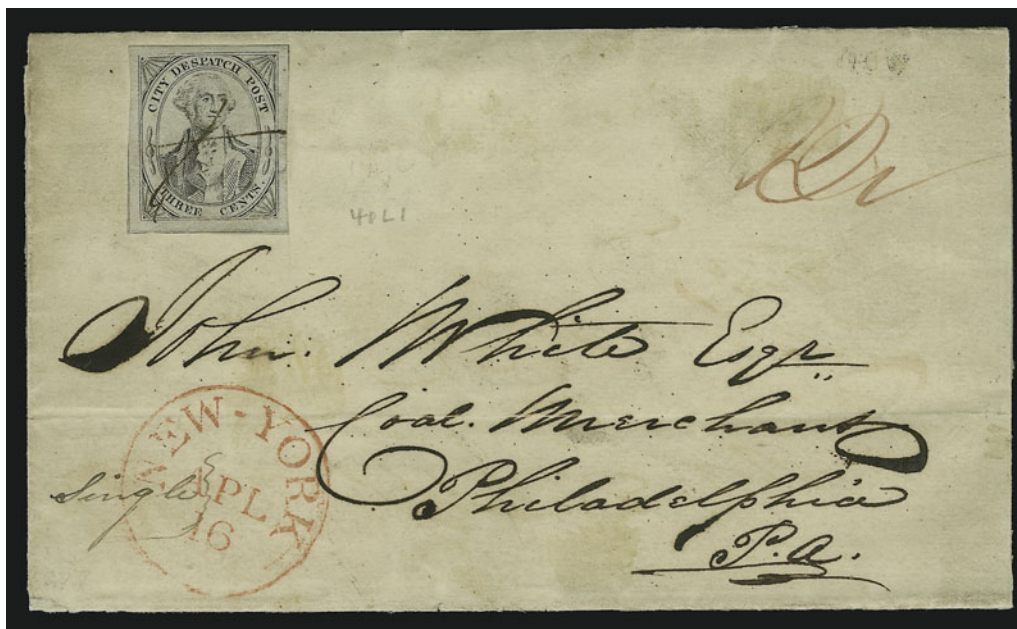 CITY DESPATCH POST
THREE CENTS.
40L1
John. White Esqr
Coal. Merchant
Philadelphia
P.a.
Single
NEW-YORK
APL
16